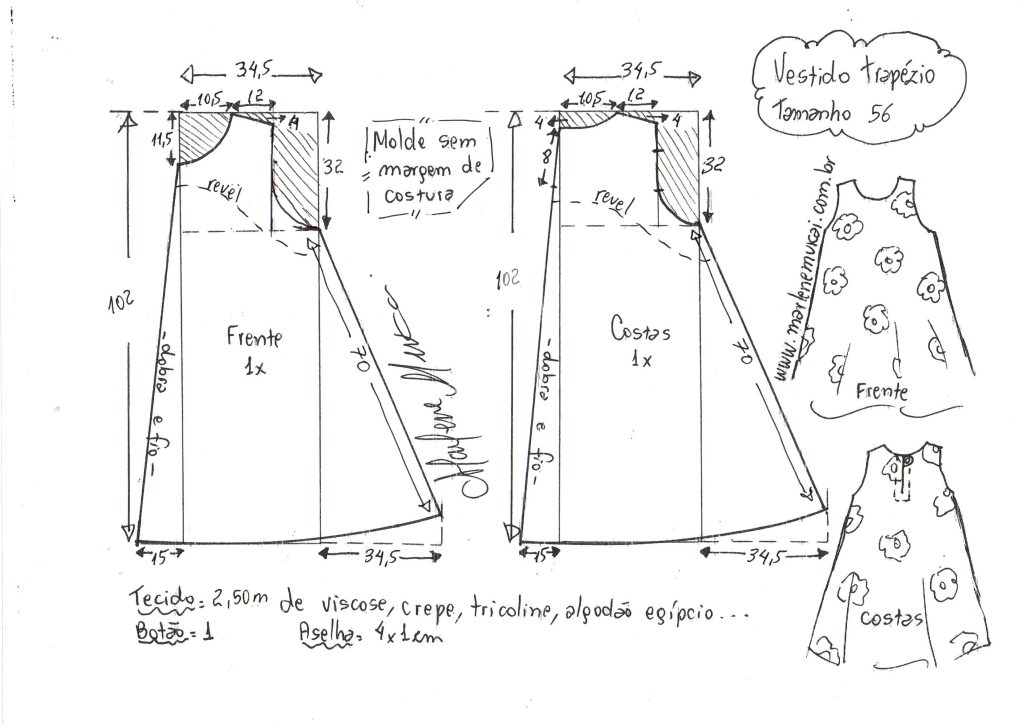 Vestido trapézio
Tamanho 56
34,5
10,5 12
4
11,5
32
revel
102
Frente
1x
70
- dobra e fio -
15
34,5
Molde sem
margem de
costura
Marlene Mukai
34,5
10,5 12
4
4
8
32
revel
102
Costas
1x
70
- dobra e fio -
15
34,5
www.marlenemukai.com.br
Frente
Costas
Tecido = 2,50m de viscose, crepe, tricoline, algodão egípcio...
Botão = 1 Aselha = 4 x 1 cm